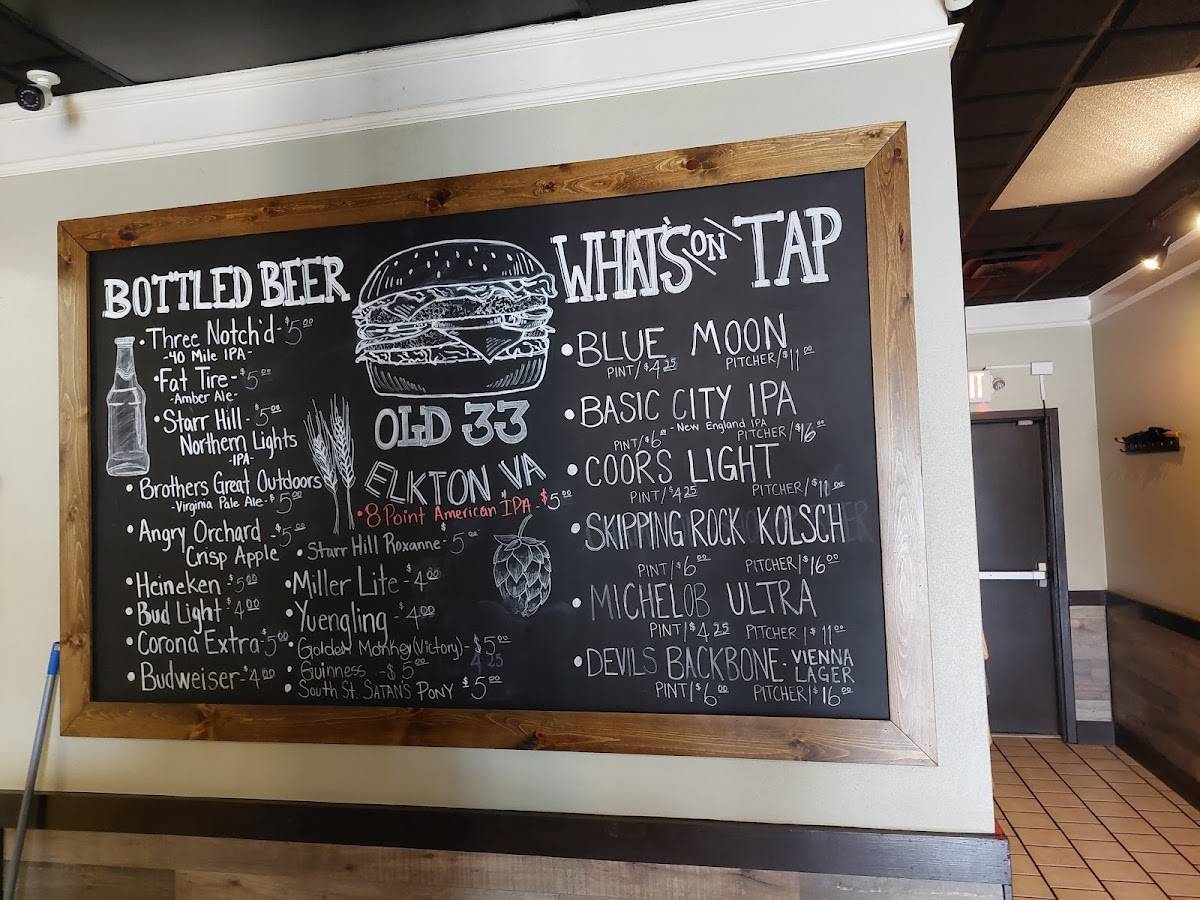 BOTTLED BEER
• Three Notch'd - $5.00
- 40 Mile IPA -
• Fat Tire - $5.00
- Amber Ale -
• Starr Hill - $5.00
Northern Lights
- IPA -
• Brothers Great Outdoors
- Virginia Pale Ale - $5.00
• Angry Orchard - $5.00
Crisp Apple
• Heineken - $5.00
• Bud Light - $4.00
• Corona Extra - $5.00
• Budweiser - $4.00
OLD 33
ELKTON VA
• 8 Point American IPA - $5.00
• Starr Hill Roxanne - $5.00
• Miller Lite - $4.00
• Yuengling - $4.00
• Golden Monkey (Victory) - $5.00
• Guinness - $5.00
• South St. SATAN'S PONY $5.00
WHAT'S ON TAP
• BLUE MOON
PINT/$4.25 PITCHER/$11.00
• BASIC CITY IPA
- New England IPA
PINT/$6.00 PITCHER/$16.00
• COORS LIGHT
PINT/$4.25 PITCHER/$11.00
• SKIPPING ROCK KOLSCH
PINT/$6.00 PITCHER/$16.00
• MICHELOB ULTRA
PINT/$4.25 PITCHER/$11.00
• DEVILS BACKBONE - VIENNA
LAGER
PINT/$6.00 PITCHER/$16.00